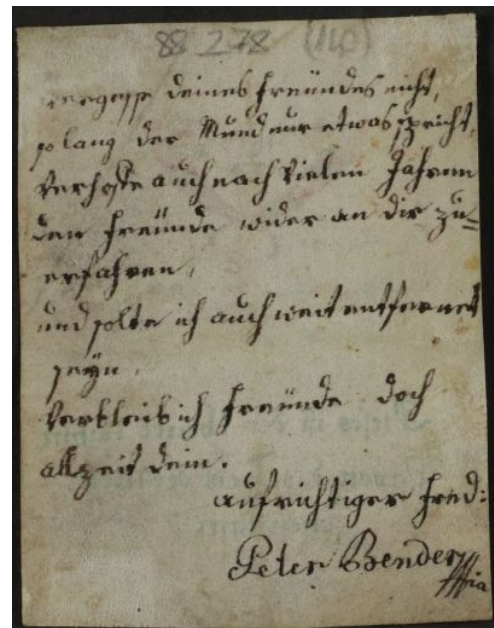 88 278 (140)
vergesse deines freündes nicht,
so lang der Mund nur etwas spricht,
verhoffe auch nach vielen Jahren
den freünde wider an dir zu=
erfahren,
und solte ich auch weit entfernet
seyn.
verbleib ich freünde doch
allzeit dein.
aufrichtiger fred:
Peter Bender